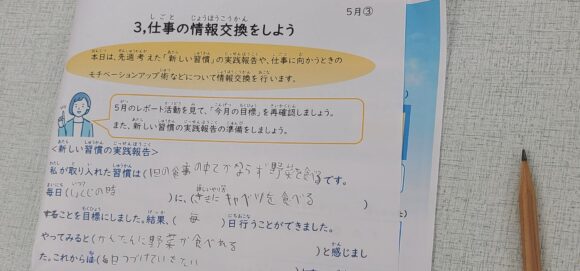 5月③
3,仕事の情報交換をしよう
本日は、先週考えた「新しい習慣」の実践報告や、仕事に向かうときの
モチベーションアップ術などについて情報交換を行います。
5月のレポート活動を見て、「今月の目標」を再確認しましょう。
また、新しい習慣の実践報告の準備をしましょう。
<新しい習慣の実践報告>
私が取り入れた習慣は(1日の食事の中でかならず野菜を食べる)です。
毎日(しょくじの時)に、(さきにキャベツを食べる
することを目標にしました。結果、(毎)日行うことができました。
やってみると(かんたんに野菜が食べれる)と感じまし
た。これからは(毎日つづけていきたい